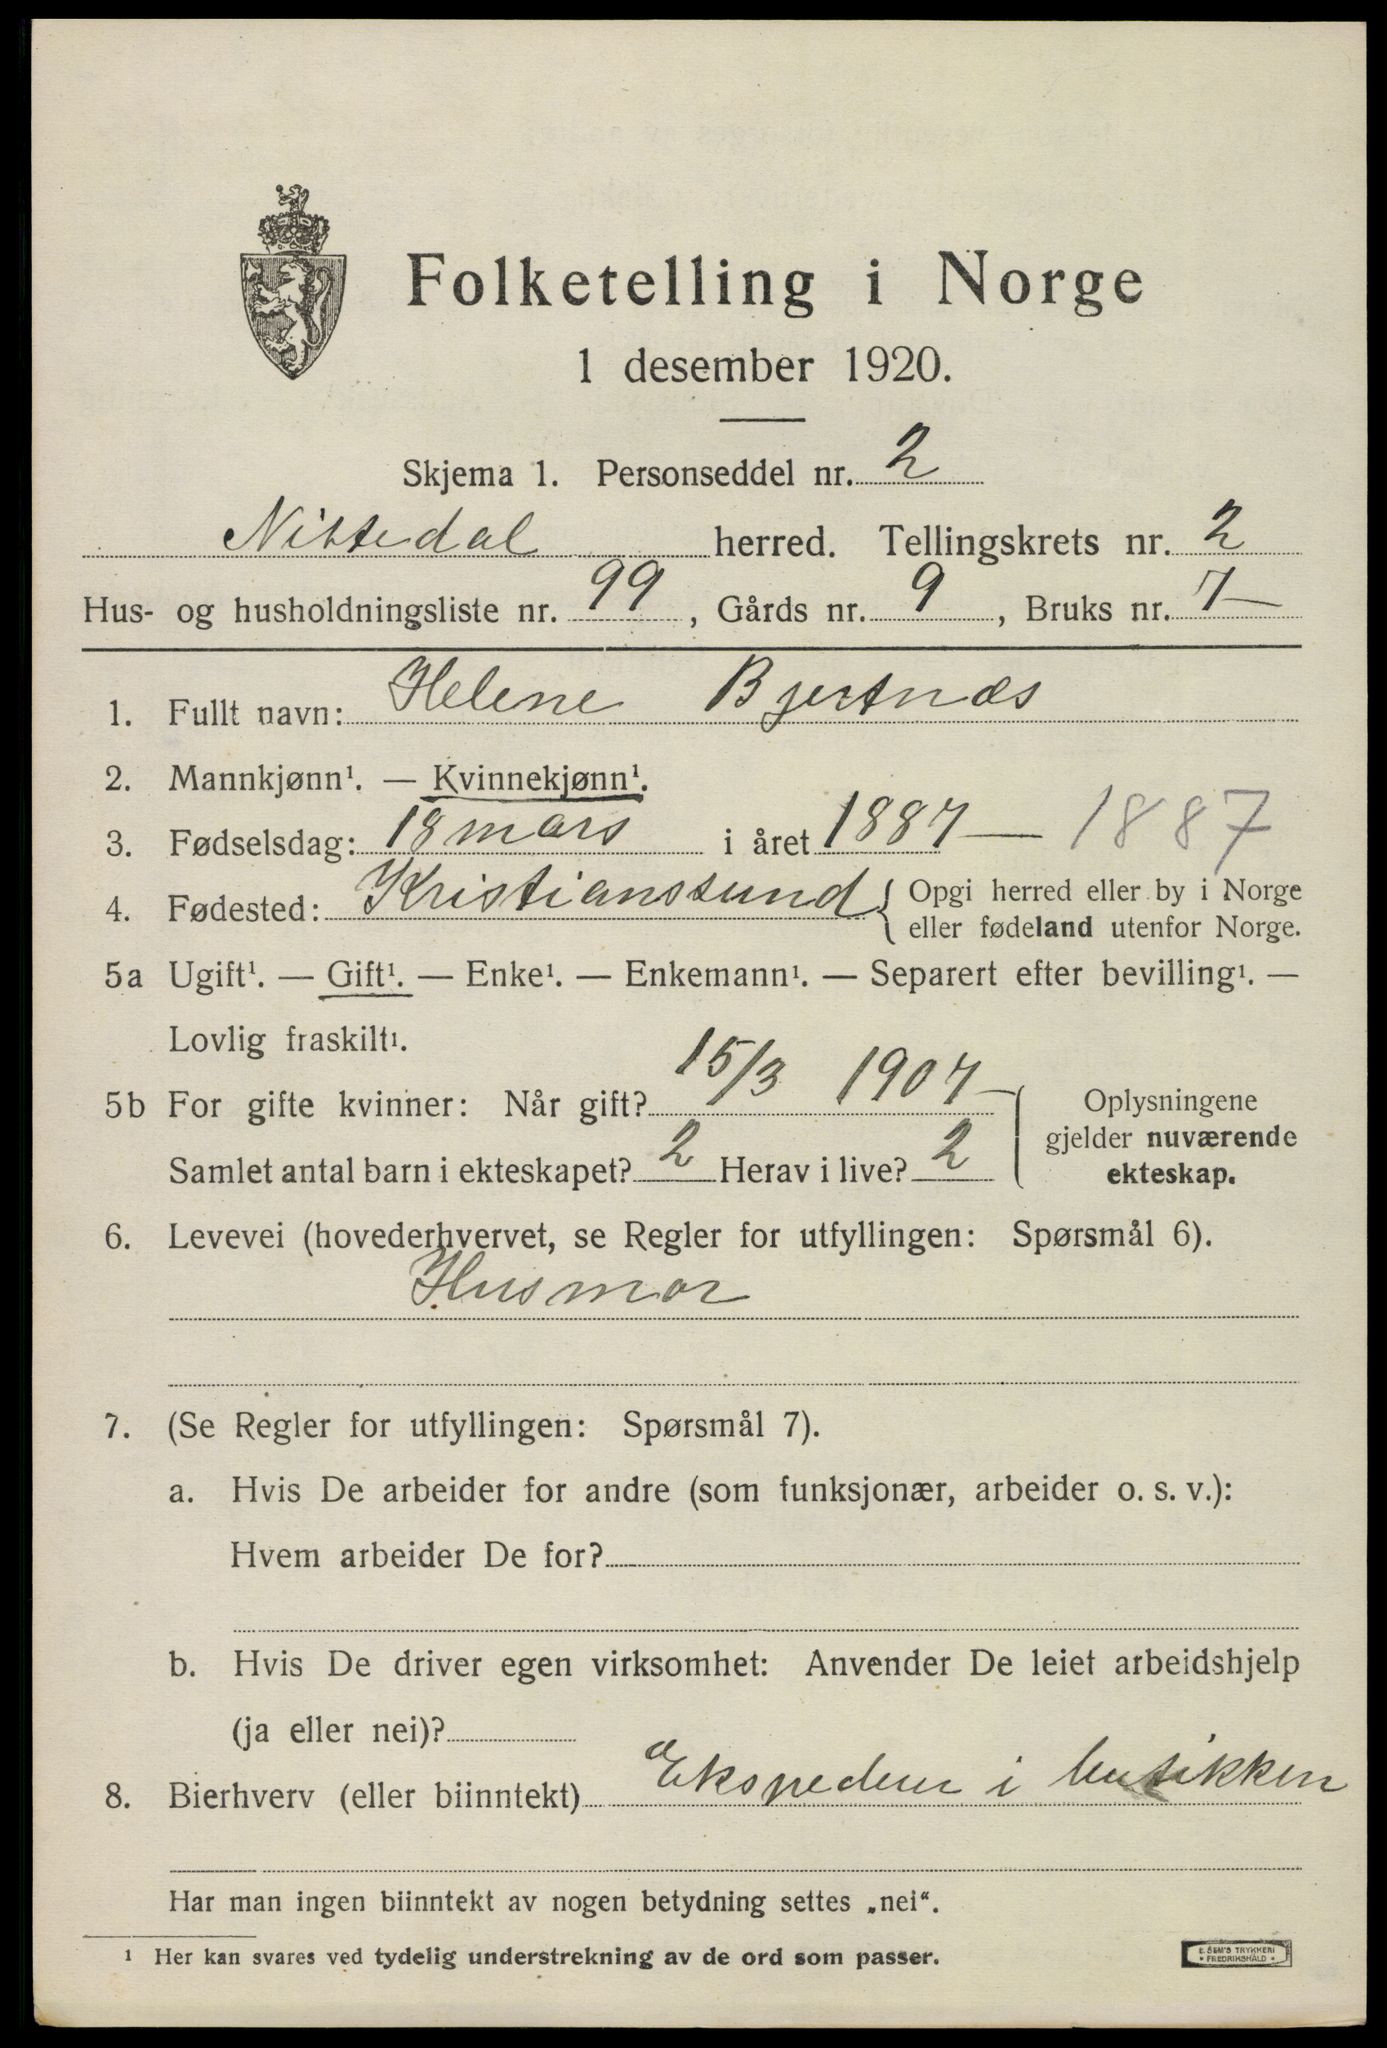 Folketelling i Norge
1 desember 1920.
Skjema 1. Personseddel nr. 2
Nittedal herred. Tellingskrets nr. 2
Hus- og husholdningsliste nr. 99, Gårds nr. 9, Bruks nr. 7
1. Fullt navn: Helene Bjertnæs
2. Mannkjønn¹. — Kvinnekjønn¹.
3. Fødselsdag: 18 mars i året 1887 — 1887
4. Fødested: Kristianssund { Opgi herred eller by i Norge
eller fødeland utenfor Norge.
5a Ugift¹. — Gift¹. — Enke¹. — Enkemann¹. — Separert efter bevilling¹. —
Lovlig fraskilt¹.
5b For gifte kvinner: Når gift? 15/3 1907 Oplysningene
gjelder nuværende
Samlet antal barn i ekteskapet? 2 Herav i live? 2 ekteskap.
6. Levevei (hovederhvervet, se Regler for utfyllingen: Spørsmål 6).
Husmor
7. (Se Regler for utfyllingen: Spørsmål 7).
a. Hvis De arbeider for andre (som funksjonær, arbeider o. s. v.):
Hvem arbeider De for?
b. Hvis De driver egen virksomhet: Anvender De leiet arbeidshjelp
(ja eller nei)?
8. Bierhverv (eller biinntekt) Ekspederer i butikken
Har man ingen biinntekt av nogen betydning settes „nei“.
¹ Her kan svares ved tydelig understrekning av de ord som passer.
E. SEM'S TRYKKERI
FREDRIKSHALD